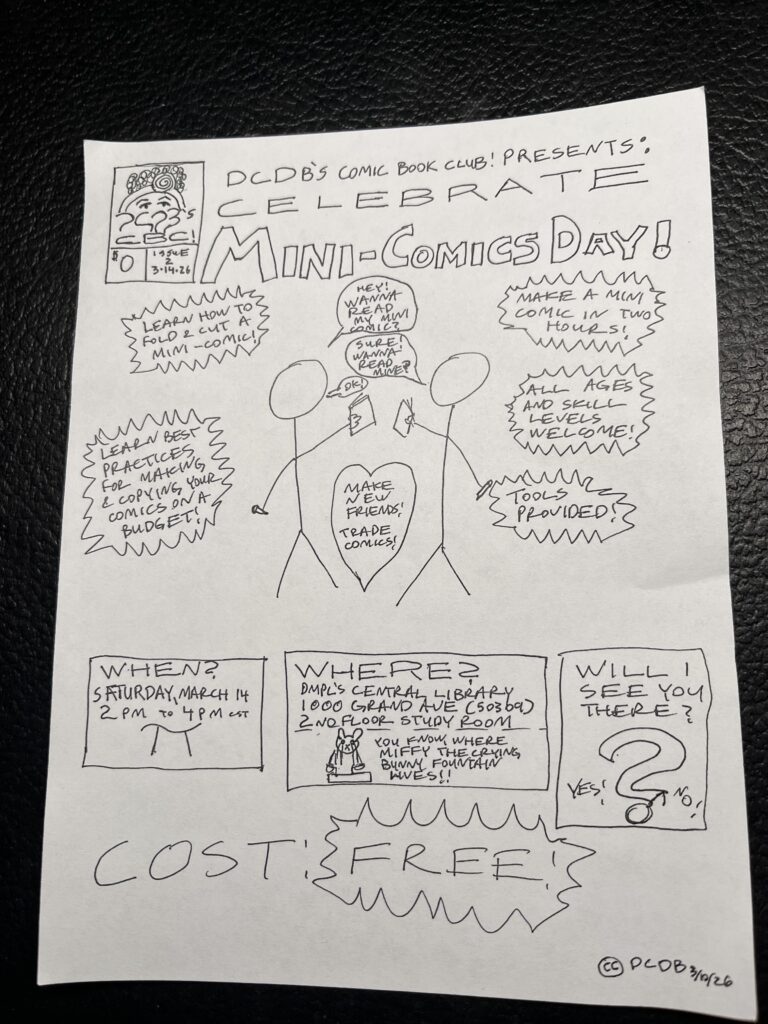 DCDB'S COMIC BOOK CLUB! PRESENTS:
CELEBRATE
MINI-COMICS DAY!
CBC!
$0
ISSUE
2
3.14.26
LEARN HOW TO
FOLD & CUT A
MINI-COMIC!
HEY!
WANNA
READ
MY MINI
COMIC?
SURE!
WANNA
READ
MINE?
OK!
MAKE A MINI
COMIC IN TWO
HOURS!
ALL AGES
AND SKILL
LEVELS
WELCOME!
LEARN BEST
PRACTICES
FOR MAKING
& COPYING YOUR
COMICS ON A
BUDGET!
MAKE
NEW
FRIENDS!
TRADE
COMICS!
TOOLS
PROVIDED!
WHEN?
SATURDAY, MARCH 14
2 PM TO 4 PM CST
WHERE?
DMPL'S CENTRAL LIBRARY
1000 GRAND AVE (50309)
2ND FLOOR STUDY ROOM
YOU KNOW, WHERE
MIFFY THE CRYING
BUNNY FOUNTAIN
LIVES!!
WILL I
SEE YOU
THERE?
YES!
?
NO!
COST: FREE!
CC DCDB